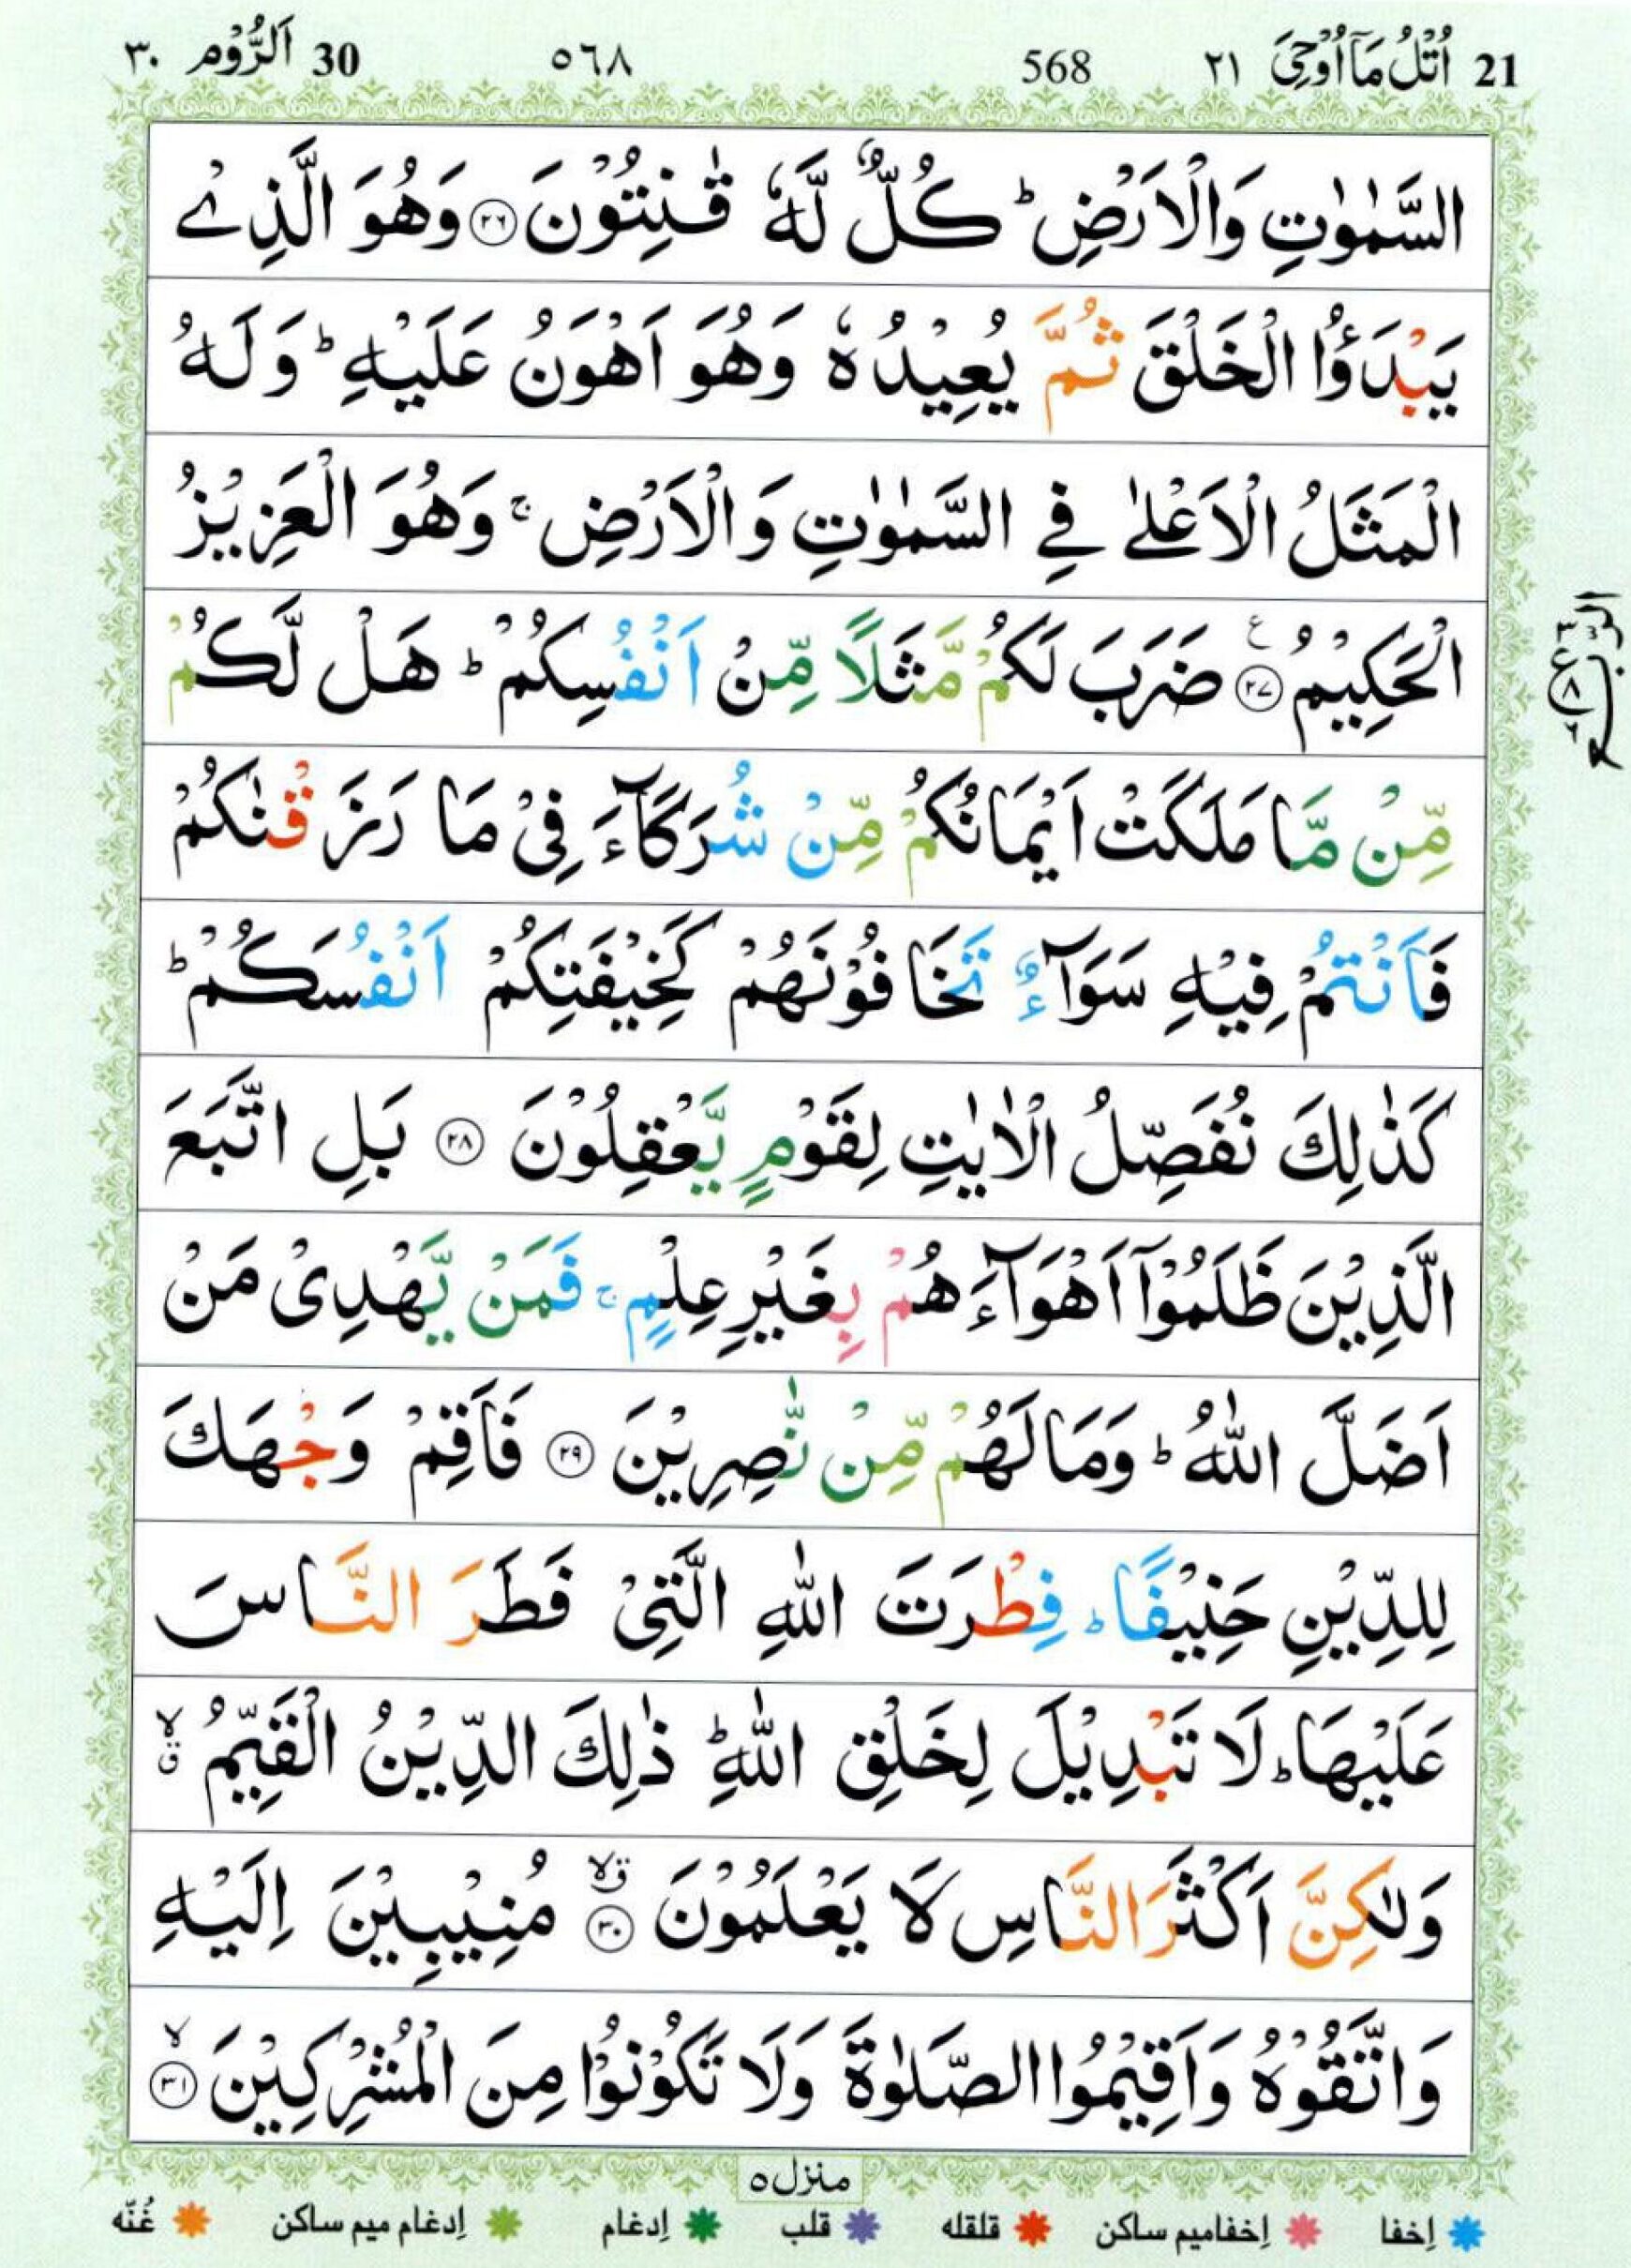 21 اُتْلُ مَآ اُوْحِیَ ٢١ 568 ٥٦٨ 30 اَلرُّوْم ٣٠
السَّمٰوٰتِ وَالْاَرْضِ ؕ كُلٌّ لَّهٗ قٰنِتُوْنَ ۝٢٦ وَهُوَ الَّذِیْ
یَبْدَؤُا الْخَلْقَ ثُمَّ یُعِیْدُهٗ وَهُوَ اَهْوَنُ عَلَیْهِ ؕ وَلَهُ
الْمَثَلُ الْاَعْلٰی فِی السَّمٰوٰتِ وَالْاَرْضِ ۚ وَهُوَ الْعَزِیْزُ
الْحَكِیْمُ ۝٢٧ ع ضَرَبَ لَكُمْ مَّثَلًا مِّنْ اَنْفُسِكُمْ ؕ هَلْ لَّكُمْ
مِّنْ مَّا مَلَكَتْ اَیْمَانُكُمْ مِّنْ شُرَكَآءَ فِیْ مَا رَزَقْنٰكُمْ
فَاَنْتُمْ فِیْهِ سَوَآءٌ تَخَافُوْنَهُمْ كَخِیْفَتِكُمْ اَنْفُسَكُمْ ؕ
كَذٰلِكَ نُفَصِّلُ الْاٰیٰتِ لِقَوْمٍ یَّعْقِلُوْنَ ۝٢٨ بَلِ اتَّبَعَ
الَّذِیْنَ ظَلَمُوْۤا اَهْوَآءَهُمْ بِغَیْرِ عِلْمٍ ۚ فَمَنْ یَّهْدِیْ مَنْ
اَضَلَّ اللّٰهُ ؕ وَمَا لَهُمْ مِّنْ نّٰصِرِیْنَ ۝٢٩ فَاَقِمْ وَجْهَكَ
لِلدِّیْنِ حَنِیْفًا ؕ فِطْرَتَ اللّٰهِ الَّتِیْ فَطَرَ النَّاسَ
عَلَیْهَا ؕ لَا تَبْدِیْلَ لِخَلْقِ اللّٰهِ ؕ ذٰلِكَ الدِّیْنُ الْقَیِّمُ ۙۗ
وَلٰكِنَّ اَكْثَرَ النَّاسِ لَا یَعْلَمُوْنَ ۝٣٠ ۗۙ مُنِیْبِیْنَ اِلَیْهِ
وَاتَّقُوْهُ وَاَقِیْمُوا الصَّلٰوةَ وَلَا تَكُوْنُوْا مِنَ الْمُشْرِكِیْنَ ۝٣١ ۙ
منزل ٥
إخفا إخفا میم ساكن قلقله قلب إدغام إدغام میم ساكن غُنّه